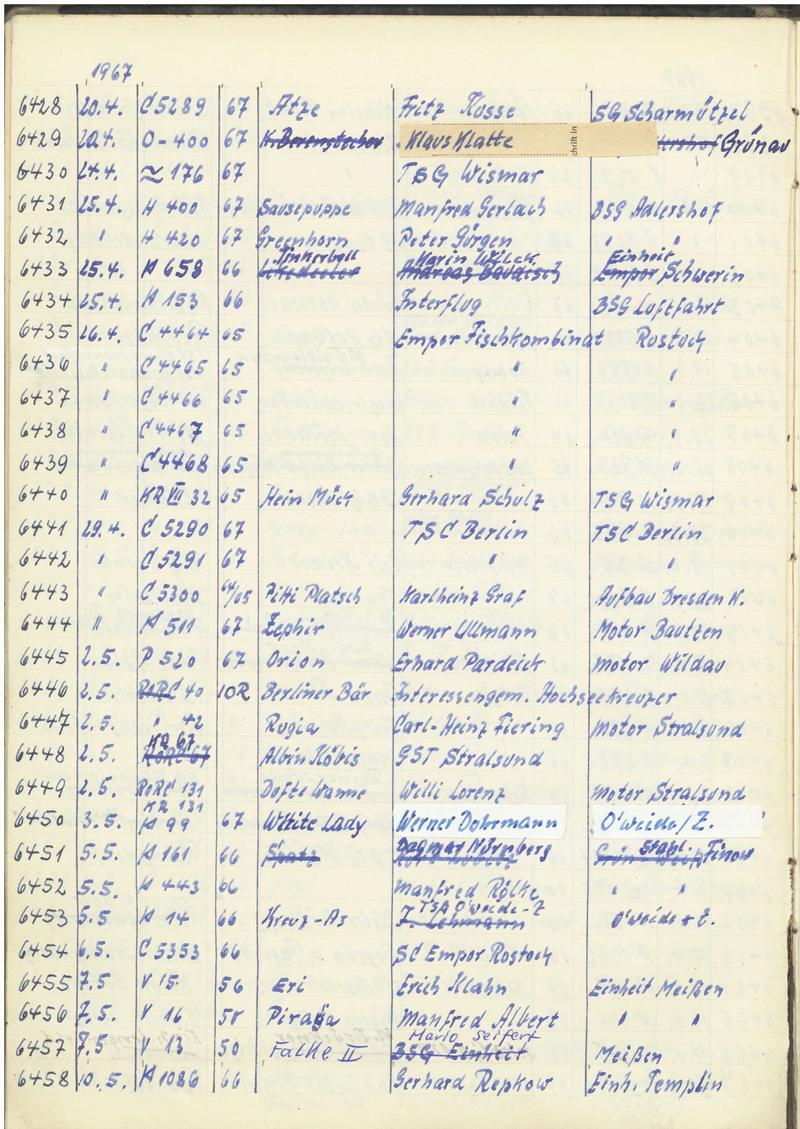 1967
6428 20.4. C 5289 67 Atze Fritz Kusse SG Scharmützel
6429 20.4. O-400 67 Klaus Klatte chrift in Grünau
6430 24.4. 176 67 TSG Wismar
6431 25.4. H 400 67 Sausepuppe Manfred Gerlach BSG Adlershof
6432 " H 420 67 Greenhorn Peter Görgen " "
Tinkerbell Marin Wilck Einheit
6433 25.4. H 658 66 Empor Schwerin
6434 25.4. H 153 66 Interflug BSG Luftfahrt
6435 26.4. C 4464 65 Empor Fischkombinat Rostock
6436 " C 4465 65 " "
6437 " C 4466 65 " "
6438 " C 4467 65 " "
6439 " C 4468 65 " "
6440 " KR VII 32 65 Hein Mück Gerhard Schulz TSG Wismar
6441 29.4. C 5290 67 TSC Berlin TSC Berlin
6442 " C 5291 67 " "
6443 " C 5300 64/65 Pitti Platsch Karlheinz Graf Aufbau Dresden N.
6444 " H 511 67 Zephir Werner Ullmann Motor Bautzen
6445 2.5. P 520 67 Orion Erhard Pardeick Motor Wildau
6446 2.5. 40 10R Berliner Bär Interessengem. Hochseekreuzer
6447 2.5. " 42 Rugia Carl-Heinz Fiering Motor Stralsund
KR 67
6448 2.5. RORC 67 Albin Köbis GST Stralsund
6449 2.5. RORC 131 Dufte Wanne Willi Lorenz Motor Stralsund
KR 131
6450 3.5. H 99 67 White Lady Werner Dohrmann O'weide/Z.
Dagmar Nürnberg Stahl
6451 5.5. H 161 66 Spatz Finow
6452 5.5. H 443 66 Manfred Rölke " "
TSG O'weide-Z
6453 5.5 H 14 66 Kreuz-As J. Lehmann O'weide + Z.
6454 6.5. C 5353 66 SC Empor Rostock
6455 7.5 V 15 56 Eri Erich Klahn Einheit Meißen
6456 7.5. V 16 58 Manfred Albert " "
Mario Seifert
6457 7.5 V 13 50 Falke II BSG Einheit Meißen
6458 10.5. H 1086 66 Gerhard Repkow Einh. Templin